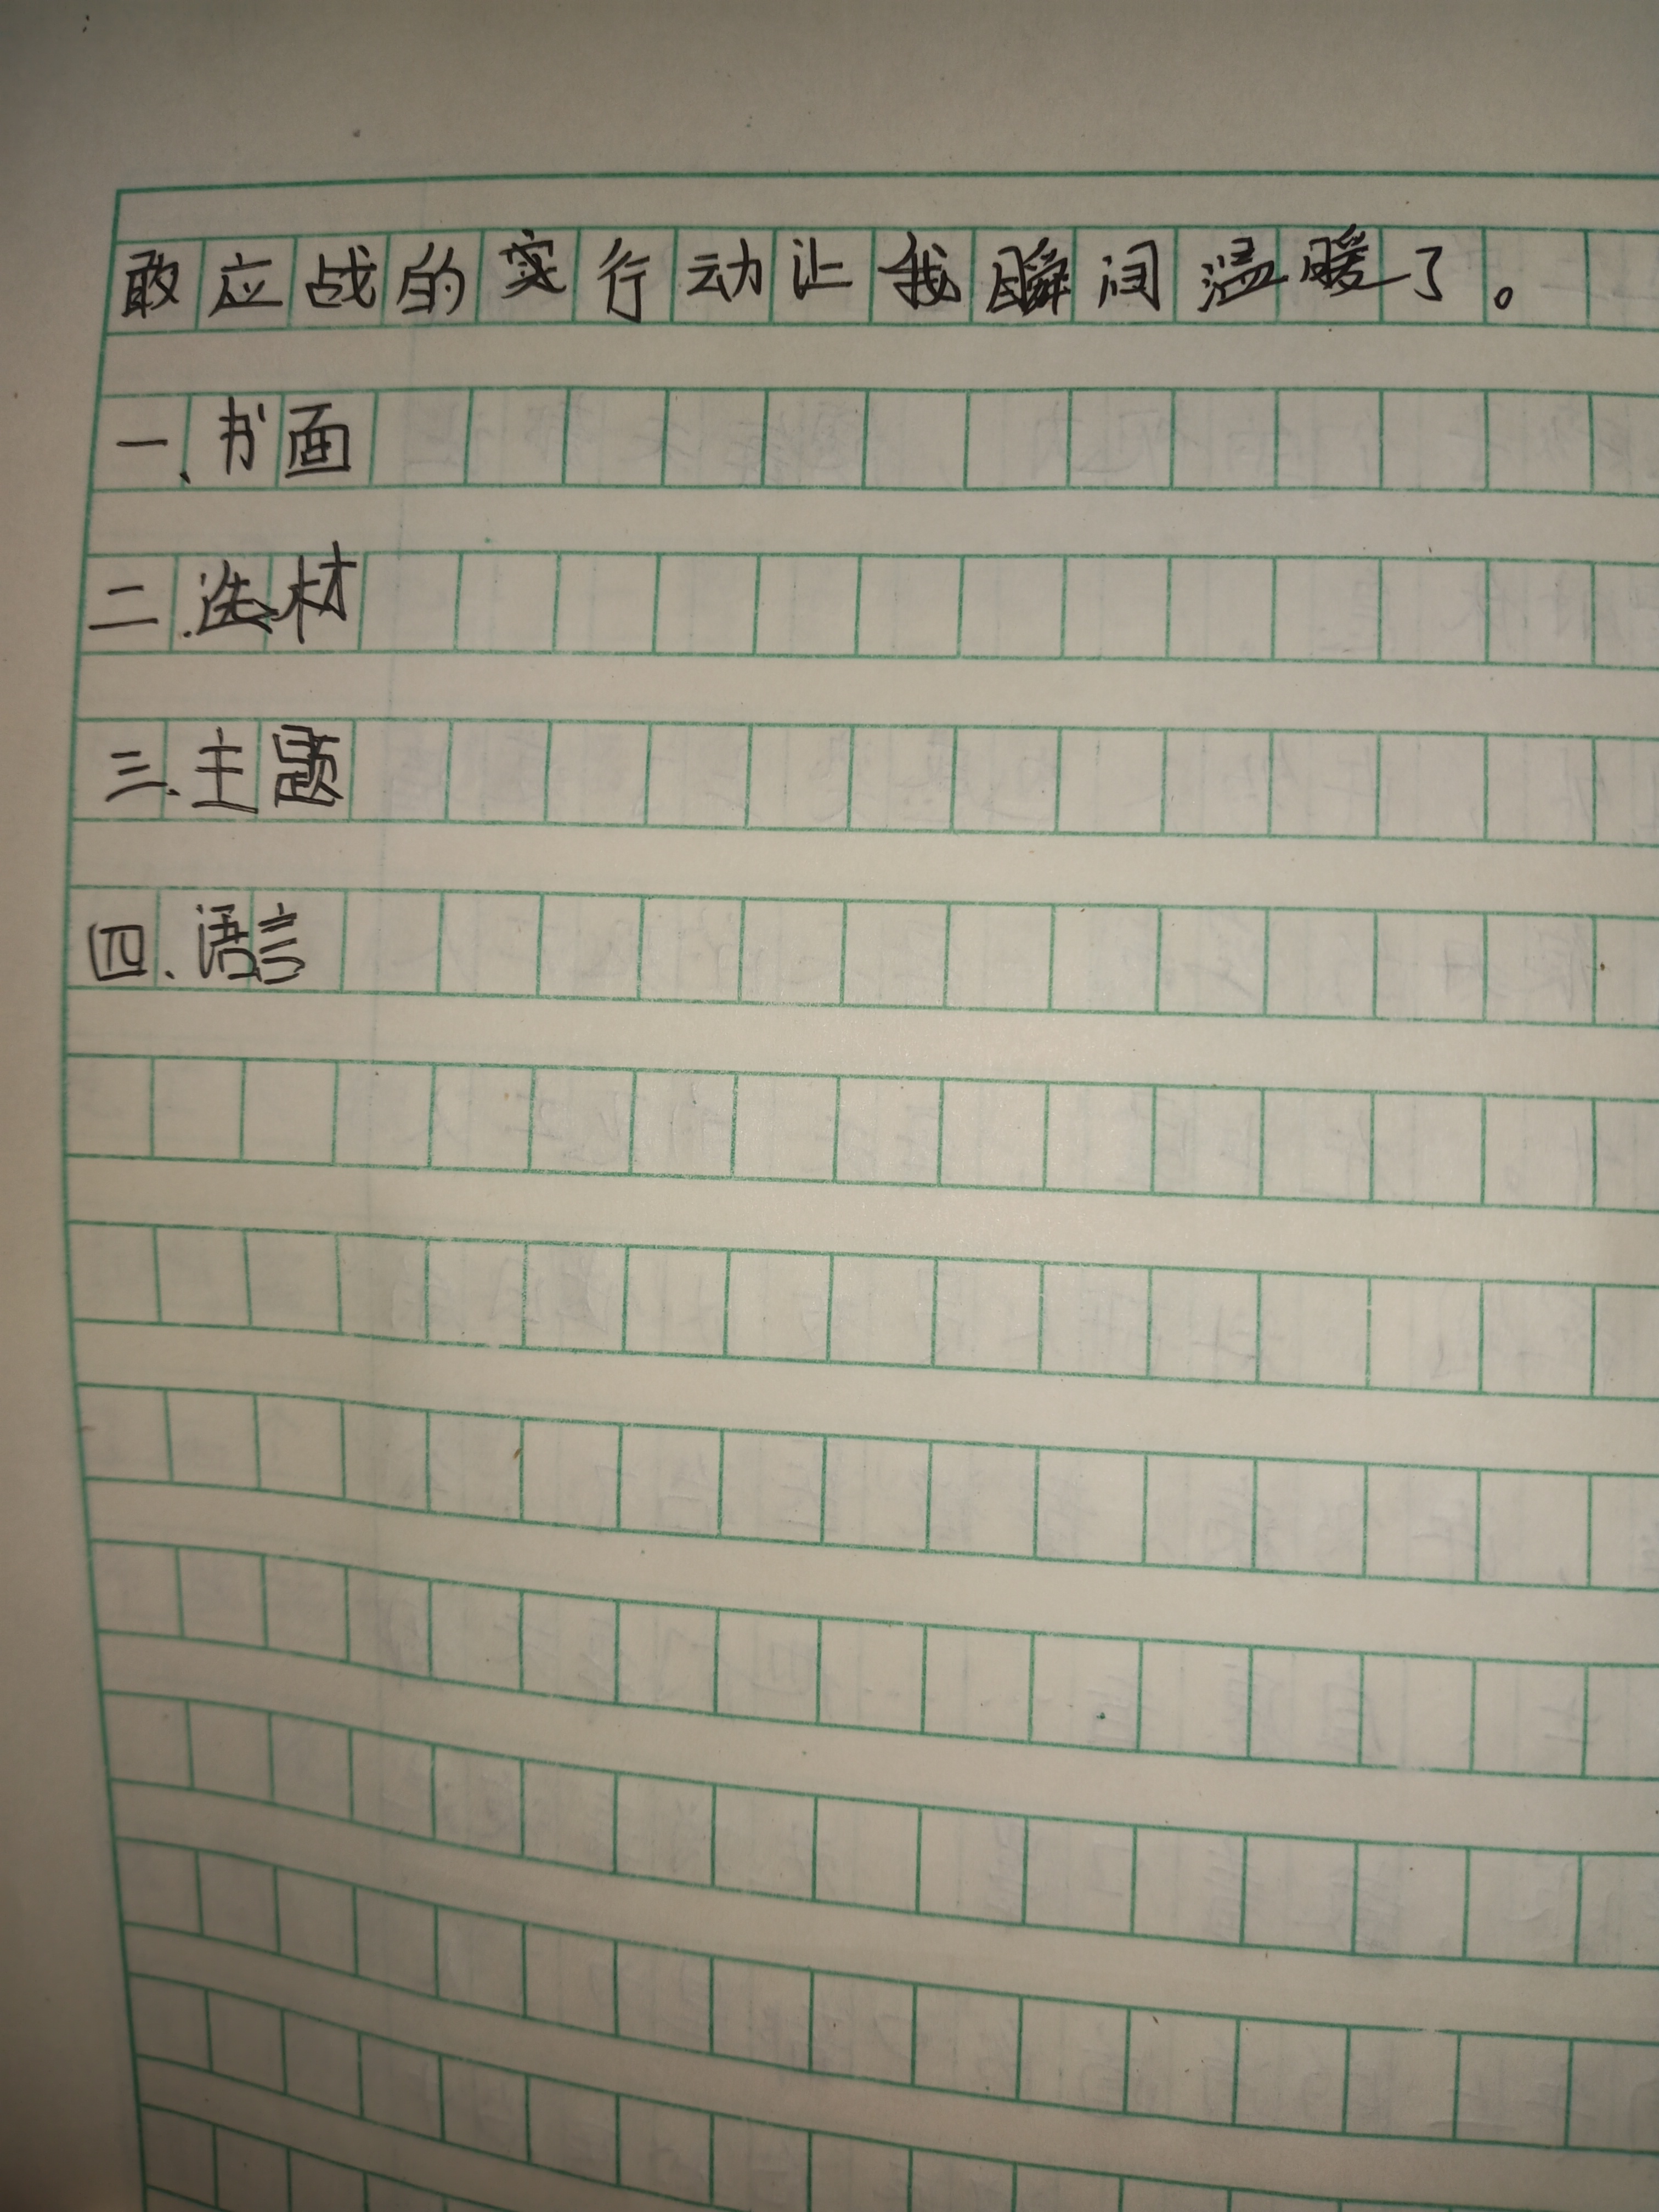 敢应战的实行动让我瞬间温暖了。
一、书面
二、选材
三、主题
四、语言